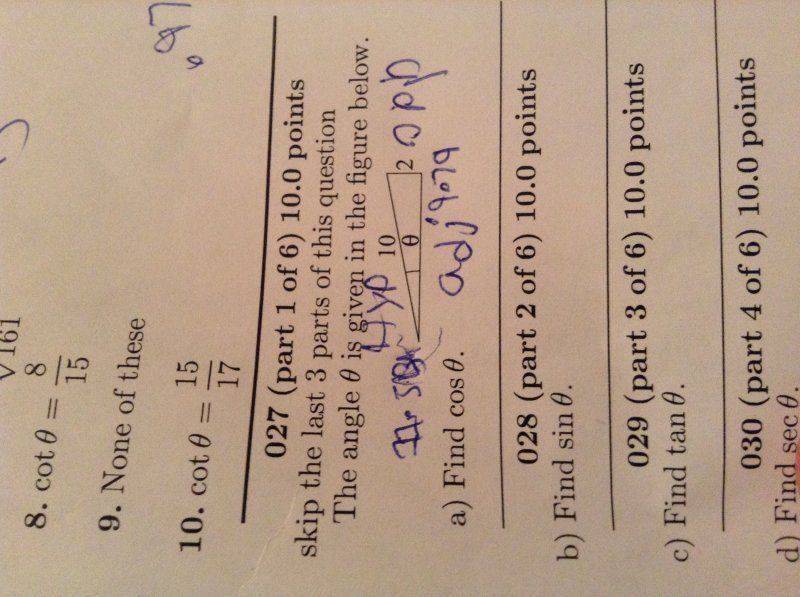 √161
8. cot θ = 8/15
9. None of these
10. cot θ = 15/17
.97
027 (part 1 of 6) 10.0 points
skip the last 3 parts of this question
The angle θ is given in the figure below.
Hyp
10
θ
2 opp
adj
a) Find cos θ.
028 (part 2 of 6) 10.0 points
b) Find sin θ.
029 (part 3 of 6) 10.0 points
c) Find tan θ.
030 (part 4 of 6) 10.0 points
d) Find sec θ.